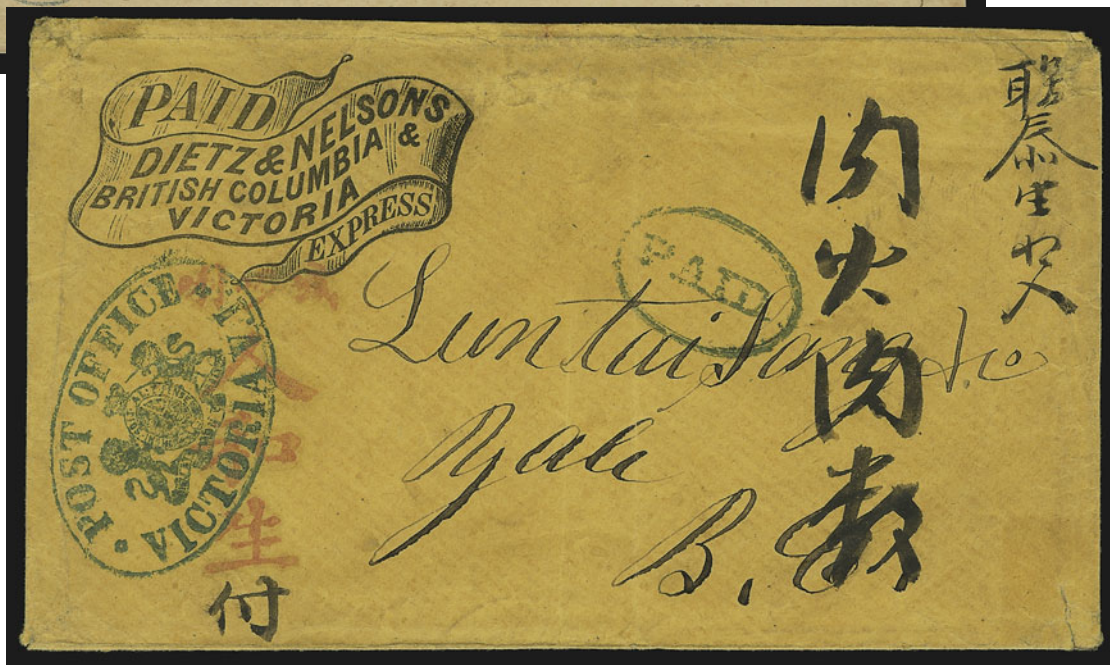 PAID
DIETZ & NELSONS
BRITISH COLUMBIA &
VICTORIA
EXPRESS
POST OFFICE · PAID
VICTORIA
PAID
Lun tai
Yale
B. C
聯泰生
内火肉数
生
付